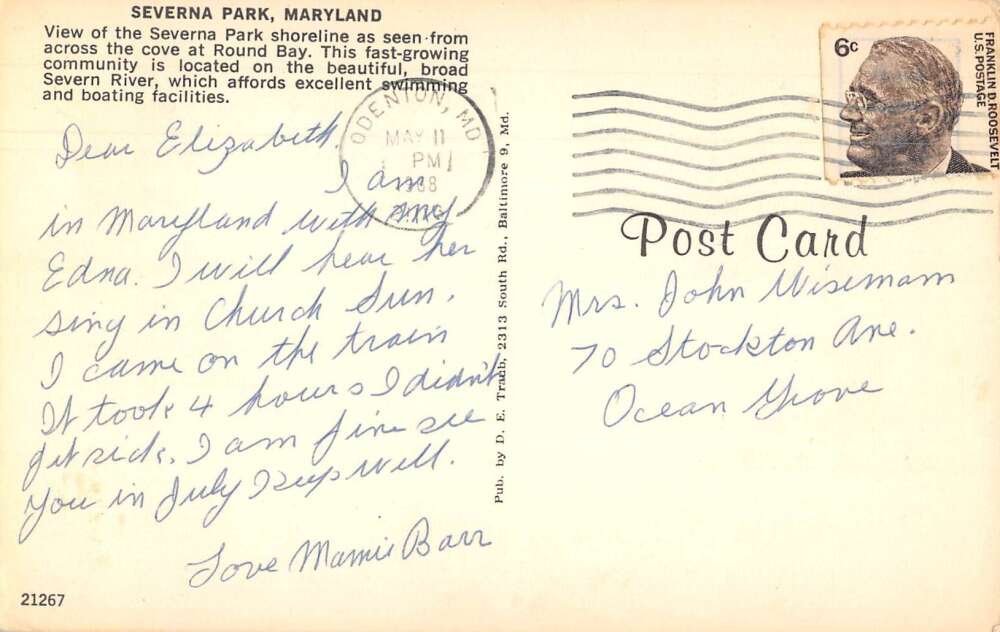 SEVERNA PARK, MARYLAND
View of the Severna Park shoreline as seen from
across the cove at Round Bay. This fast-growing
community is located on the beautiful, broad
Severn River, which affords excellent swimming
and boating facilities.
Dear Elizabeth,
I am
in Maryland with my
Edna. I will hear her
sing in Church Sun.
I came on the train
It took 4 hours I didn't
get sick. I am fine see
you in July Keep well.
Love Mamie Barr
21267
ODENTON, MD
MAY 11
PM
1968
Pub. by D. E. Traub, 2313 South Rd., Baltimore 9, Md.
6c
FRANKLIN D. ROOSEVELT
U.S. POSTAGE
Post Card
Mrs. John Wisemann
70 Stockton Ave.
Ocean Grove